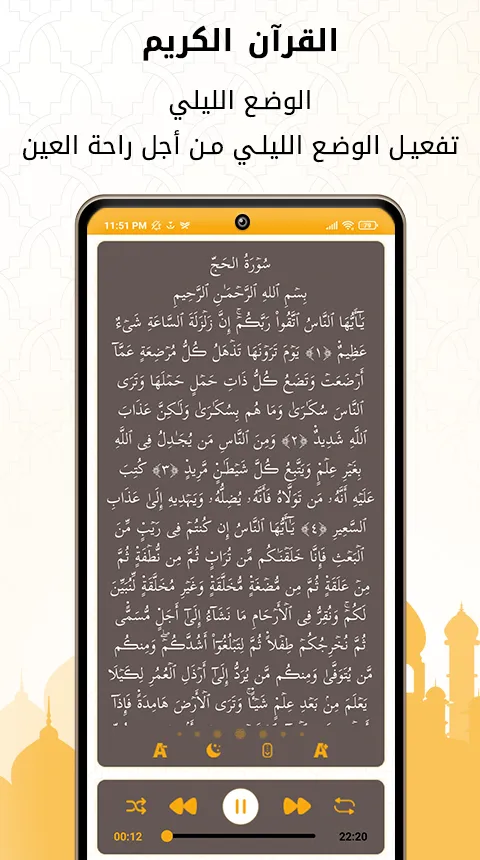 القرآن الكريم
الوضع الليلي
تفعيل الوضع الليلي من أجل راحة العين
11:51 PM
79
سُورَةُ الحَجّ
بِسْمِ اللهِ الرَّحْمَٰنِ الرَّحِيمِ
يَٰٓأَيُّهَا ٱلنَّاسُ ٱتَّقُوا۟ رَبَّكُمْ ۚ إِنَّ زَلْزَلَةَ ٱلسَّاعَةِ شَىْءٌ
عَظِيمٌ ﴿١﴾ يَوْمَ تَرَوْنَهَا تَذْهَلُ كُلُّ مُرْضِعَةٍ عَمَّآ
أَرْضَعَتْ وَتَضَعُ كُلُّ ذَاتِ حَمْلٍ حَمْلَهَا وَتَرَى
ٱلنَّاسَ سُكَٰرَىٰ وَمَا هُم بِسُكَٰرَىٰ وَلَٰكِنَّ عَذَابَ
ٱللَّهِ شَدِيدٌ ﴿٢﴾ وَمِنَ ٱلنَّاسِ مَن يُجَٰدِلُ فِى ٱللَّهِ
بِغَيْرِ عِلْمٍ وَيَتَّبِعُ كُلَّ شَيْطَٰنٍ مَّرِيدٍ ﴿٣﴾ كُتِبَ
عَلَيْهِ أَنَّهُۥ مَن تَوَلَّاهُ فَأَنَّهُۥ يُضِلُّهُۥ وَيَهْدِيهِ إِلَىٰ عَذَابِ
ٱلسَّعِيرِ ﴿٤﴾ يَٰٓأَيُّهَا ٱلنَّاسُ إِن كُنتُمْ فِى رَيْبٍ مِّنَ
ٱلْبَعْثِ فَإِنَّا خَلَقْنَٰكُم مِّن تُرَابٍ ثُمَّ مِن نُّطْفَةٍ ثُمَّ
مِنْ عَلَقَةٍ ثُمَّ مِن مُّضْغَةٍ مُّخَلَّقَةٍ وَغَيْرِ مُخَلَّقَةٍ لِّنُبَيِّنَ
لَكُمْ ۚ وَنُقِرُّ فِى ٱلْأَرْحَامِ مَا نَشَآءُ إِلَىٰٓ أَجَلٍ مُّسَمًّى
ثُمَّ نُخْرِجُكُمْ طِفْلًا ثُمَّ لِتَبْلُغُوٓا۟ أَشُدَّكُمْ ۖ وَمِنكُم
مَّن يُتَوَفَّىٰ وَمِنكُم مَّن يُرَدُّ إِلَىٰٓ أَرْذَلِ ٱلْعُمُرِ لِكَيْلَا
يَعْلَمَ مِنۢ بَعْدِ عِلْمٍ شَيْـًٔا ۚ وَتَرَى ٱلْأَرْضَ هَامِدَةً فَإِذَآ
00:12
22:20